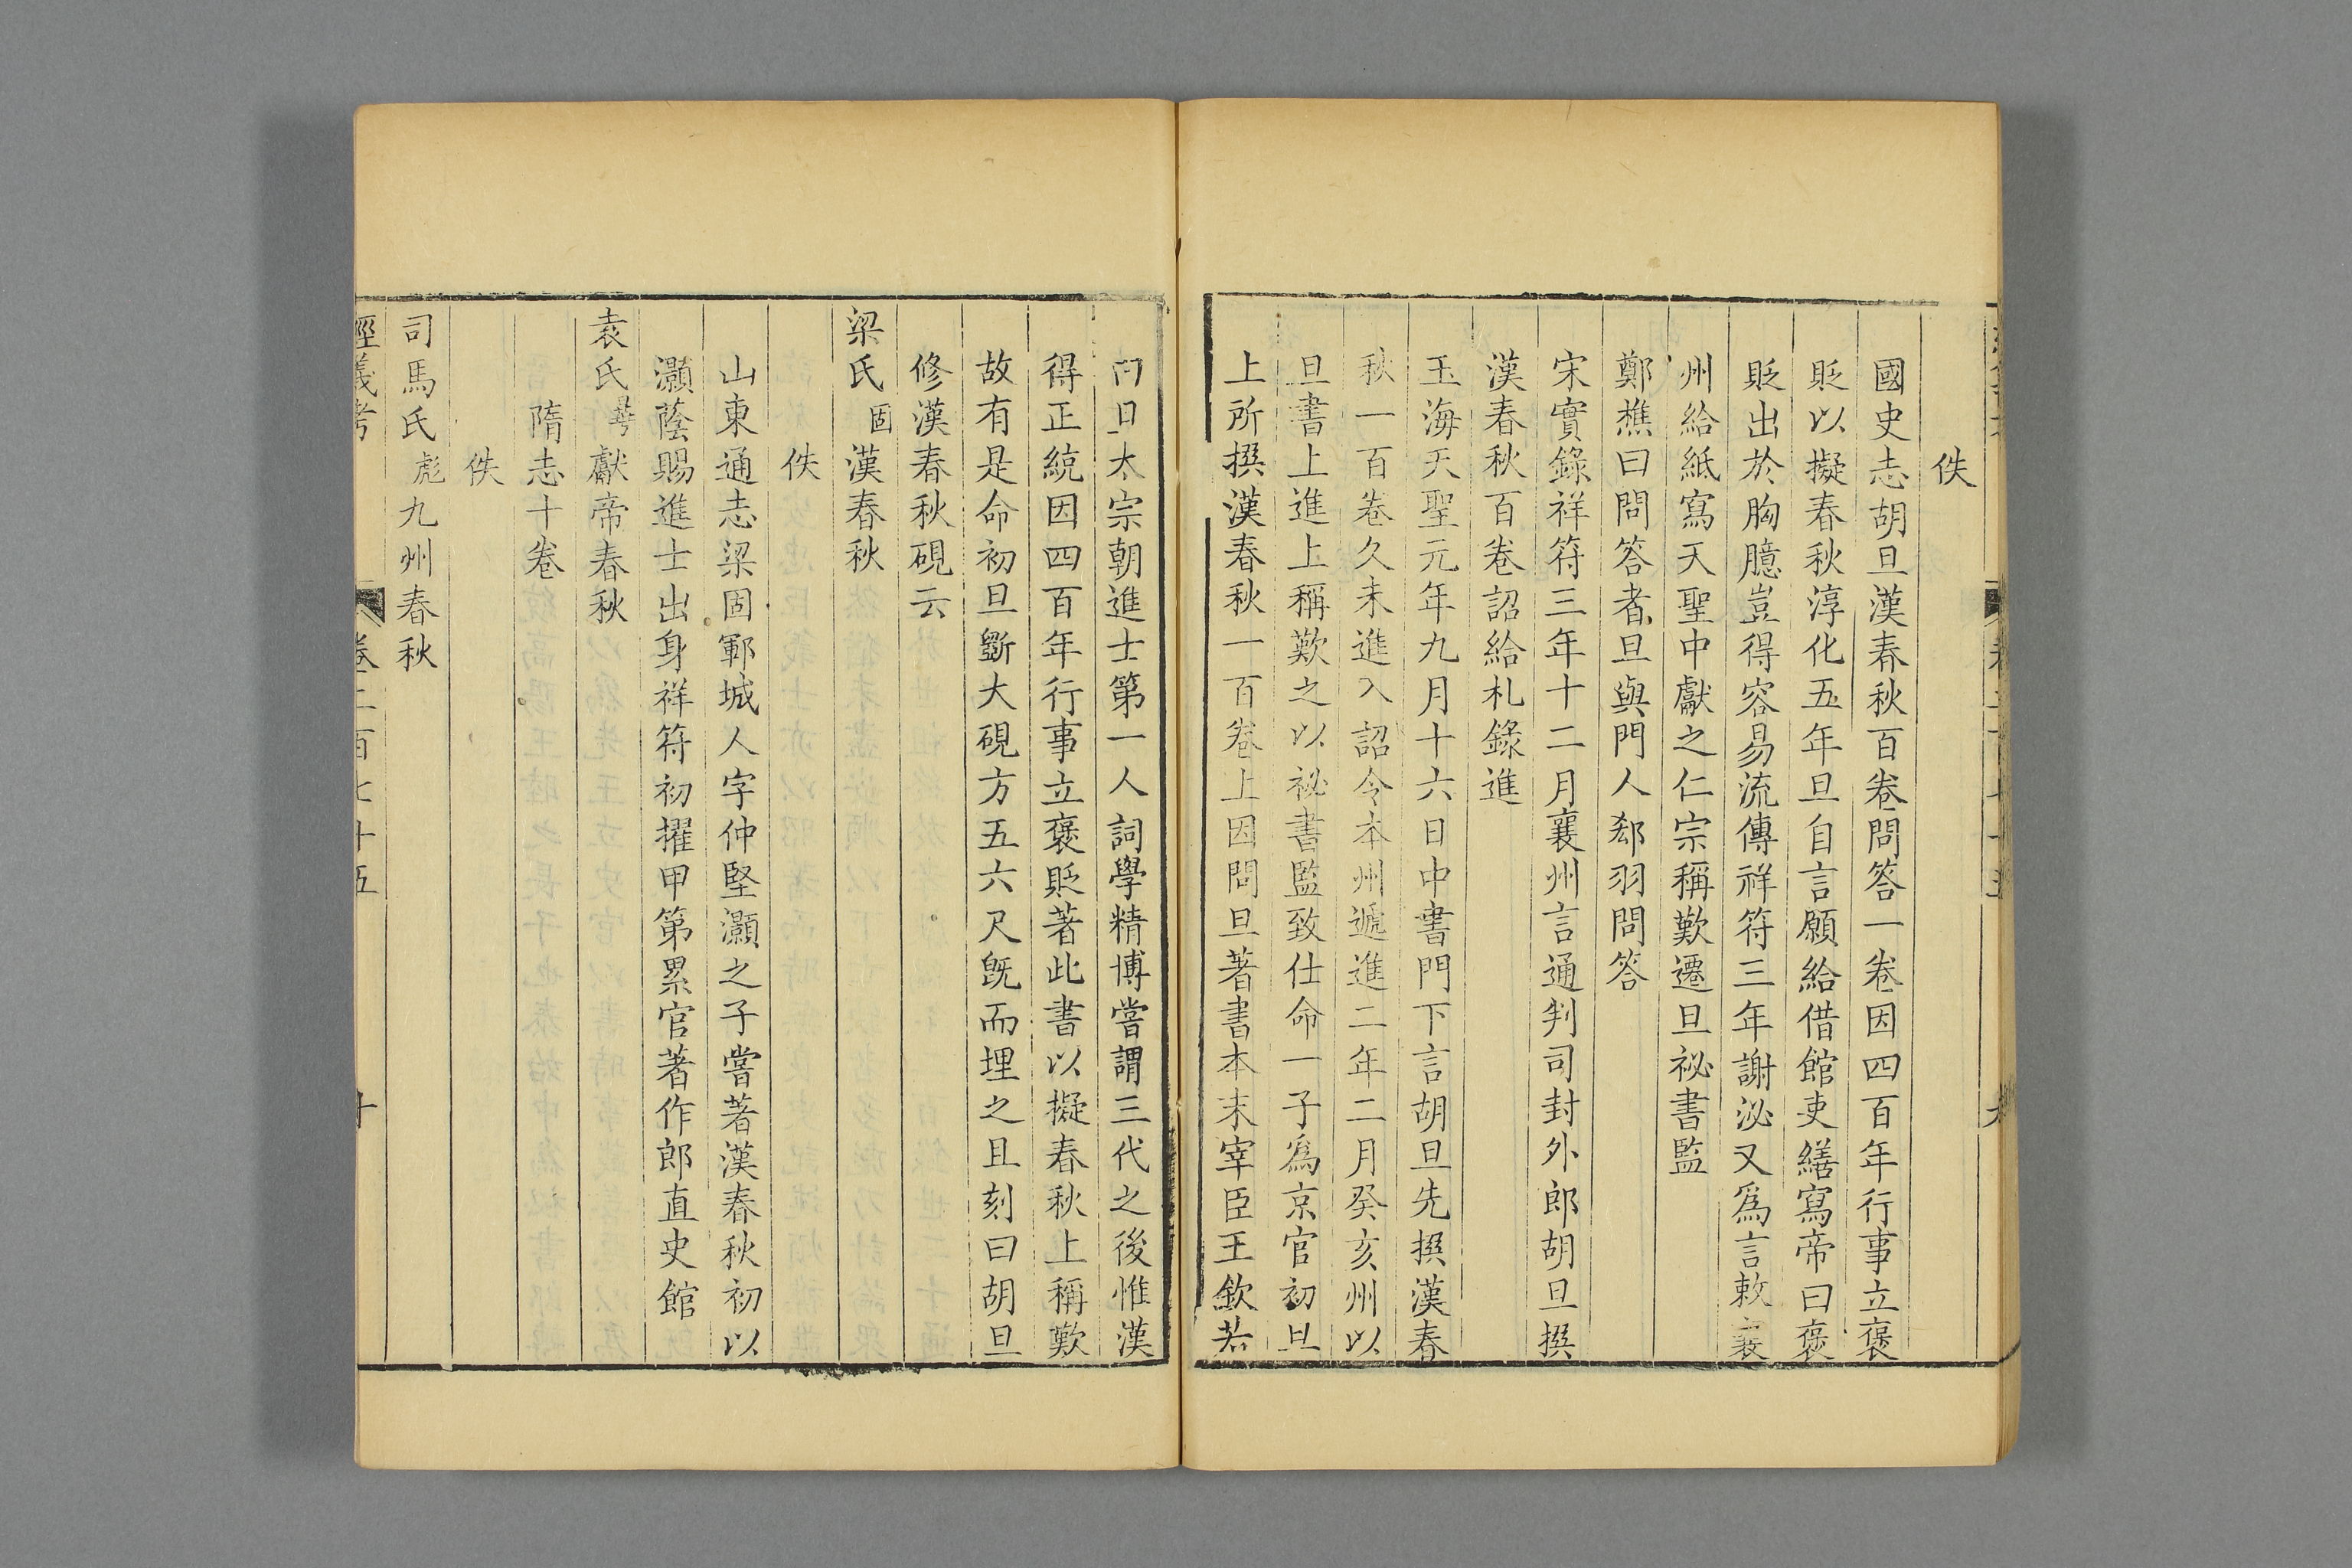 佚
國史志胡旦漢春秋百卷問答一卷因四百年行事立褒
貶以擬春秋淳化五年旦自言願給借館吏繕寫帝曰褒
貶出於胸臆豈得容易流傳祥符三年謝泌又爲言敕襄
州給紙寫天聖中獻之仁宗稱歎遷旦祕書監
鄭樵曰問答者旦與門人郄羽問答
宋實錄祥符三年十二月襄州言通判司封外郎胡旦撰
漢春秋百卷詔給札錄進
玉海天聖元年九月十六日中書門下言胡旦先撰漢春
秋一百卷久未進入詔令本州遞進二年二月癸亥州以
旦書上進上稱歎之以祕書監致仕命一子爲京官初旦
上所撰漢春秋一百卷上因問旦著書本末宰臣王欽若
曰太宗朝進士第一人詞學精博嘗謂三代之後惟漢
得正統因四百年行事立褒貶著此書以擬春秋上稱歎
故有是命初旦斵大硯方五六尺旣而埋之且刻曰胡旦
修漢春秋硯云
梁氏固漢春秋
佚
山東通志梁固鄆城人字仲堅灝之子嘗著漢春秋初以
灝蔭賜進士出身祥符初擢甲第累官著作郎直史館
袁氏曄獻帝春秋
隋志十卷
佚
司馬氏彪九州春秋
經義考 卷二百七十五 十